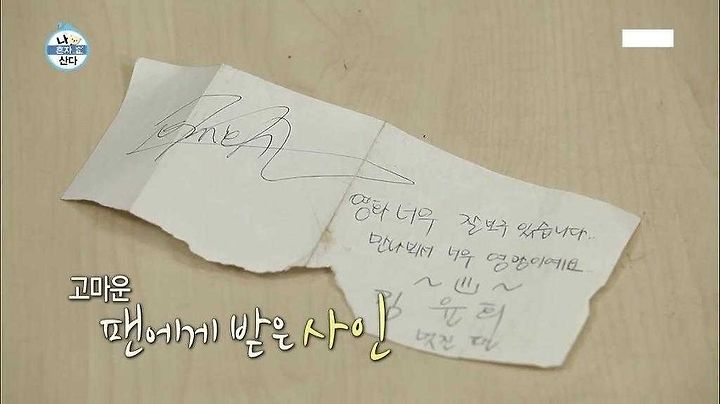 나
혼자
산다
영화 너무 잘보구 있습니다..
만나뵈서 너무 영광이예요
~ ~
윤 희
고마운
팬에게 받은 사인